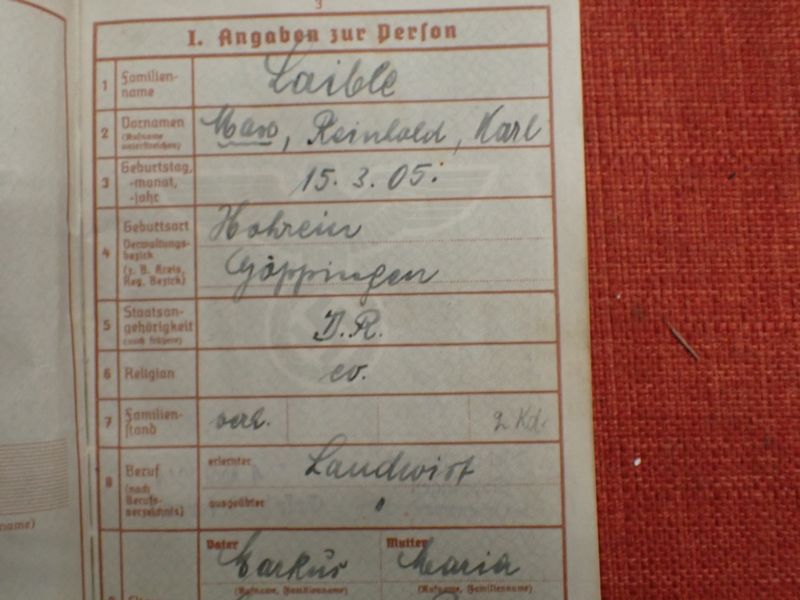 3
I. Angaben zur Person
1 Familien-
name
Laible
2 Vornamen
(Rufname
unterstreichen)
Max, Reinhold, Karl
3 Geburtstag,
-monat,
-jahr
15. 3. 05.
4 Geburtsort
Verwaltungs-
bezirk
(z. B. Kreis,
Reg. Bezirk)
Hohrein
Göppingen
5 Staatsan-
gehörigkeit
(auch frühere)
D.R.
6 Religion
ev.
7 Familien-
stand
verh. 2 Kd.
8 Beruf
(nach
Berufs-
verzeichnis)
erlernter
Landwirt
ausgeübter
"
Vater
Markus
(Rufname, Familienname)
Mutter
Maria
(Rufname, Familienname)
name)